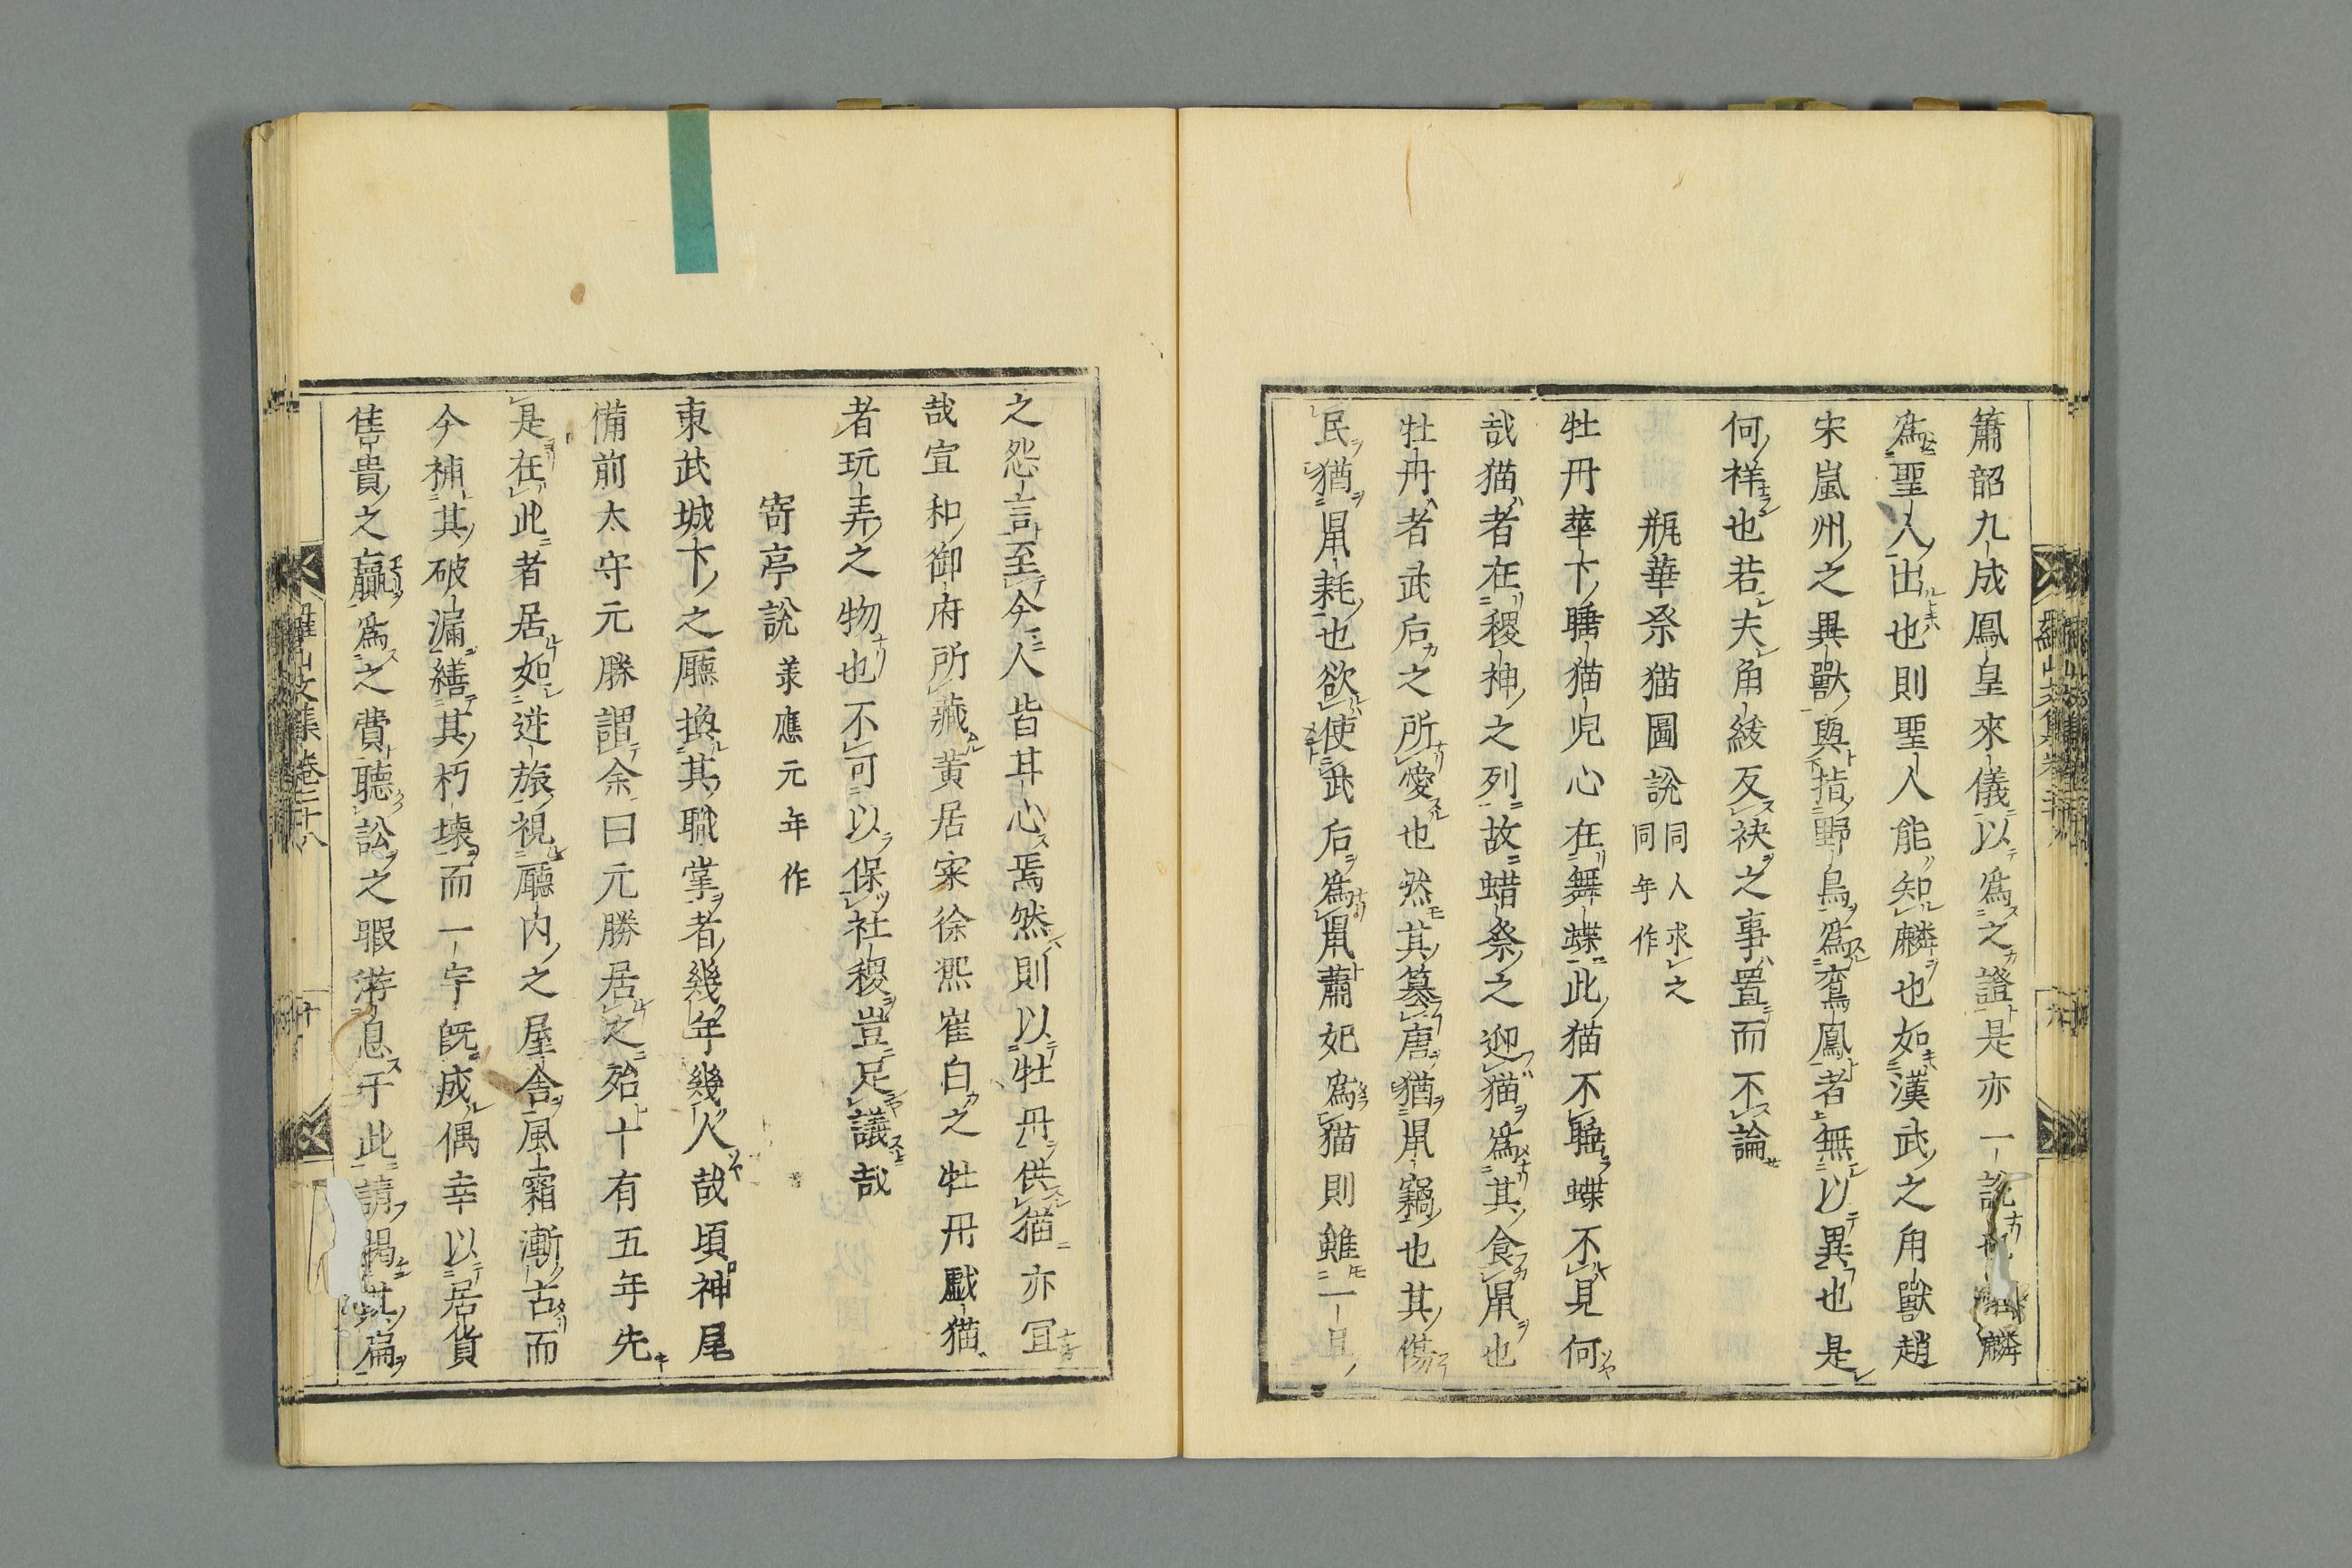 簫韶九成鳳皇來儀以爲之證是亦一說麟
爲聖人出也則聖人能知麟也如漢武之角獸趙
宋嵐州之異獸與指野鳥爲鸞鳳者無以異也是
何祥也若夫角綏反袂之事置而不論
瓶華祭猫圖說同人求之
同年作
牡丹華下睡猫児心在舞蝶此猫不睡蝶不見何
哉猫者在稷神之列故蜡祭之迎猫爲其食鼠也
牡丹者武后之所愛也然其簒唐猶鼠竊也其傷
民猶鼠耗也欲使武后爲鼠蕭妃爲猫則雖一旦
之怨言至今人皆甘心焉然則以牡丹供猫亦宜
哉宣和御府所藏黄居寀徐熈崔白之牡丹戯猫
者玩弄之物也不可以保社稷豈足議哉
寄亭說 羕應元年作
東武城下之廳換其職掌者幾年幾人哉頃神尾
備前太守元勝謂余曰元勝居之殆十有五年先
是在此者居如逆旅視廳内之屋舎風霜漸古而
今補其破漏繕其朽壊而一宇既成偶幸以居貨
售貴之贏爲之費聽訟之暇游息于此請掲其扁
羅山文集卷三十八
十